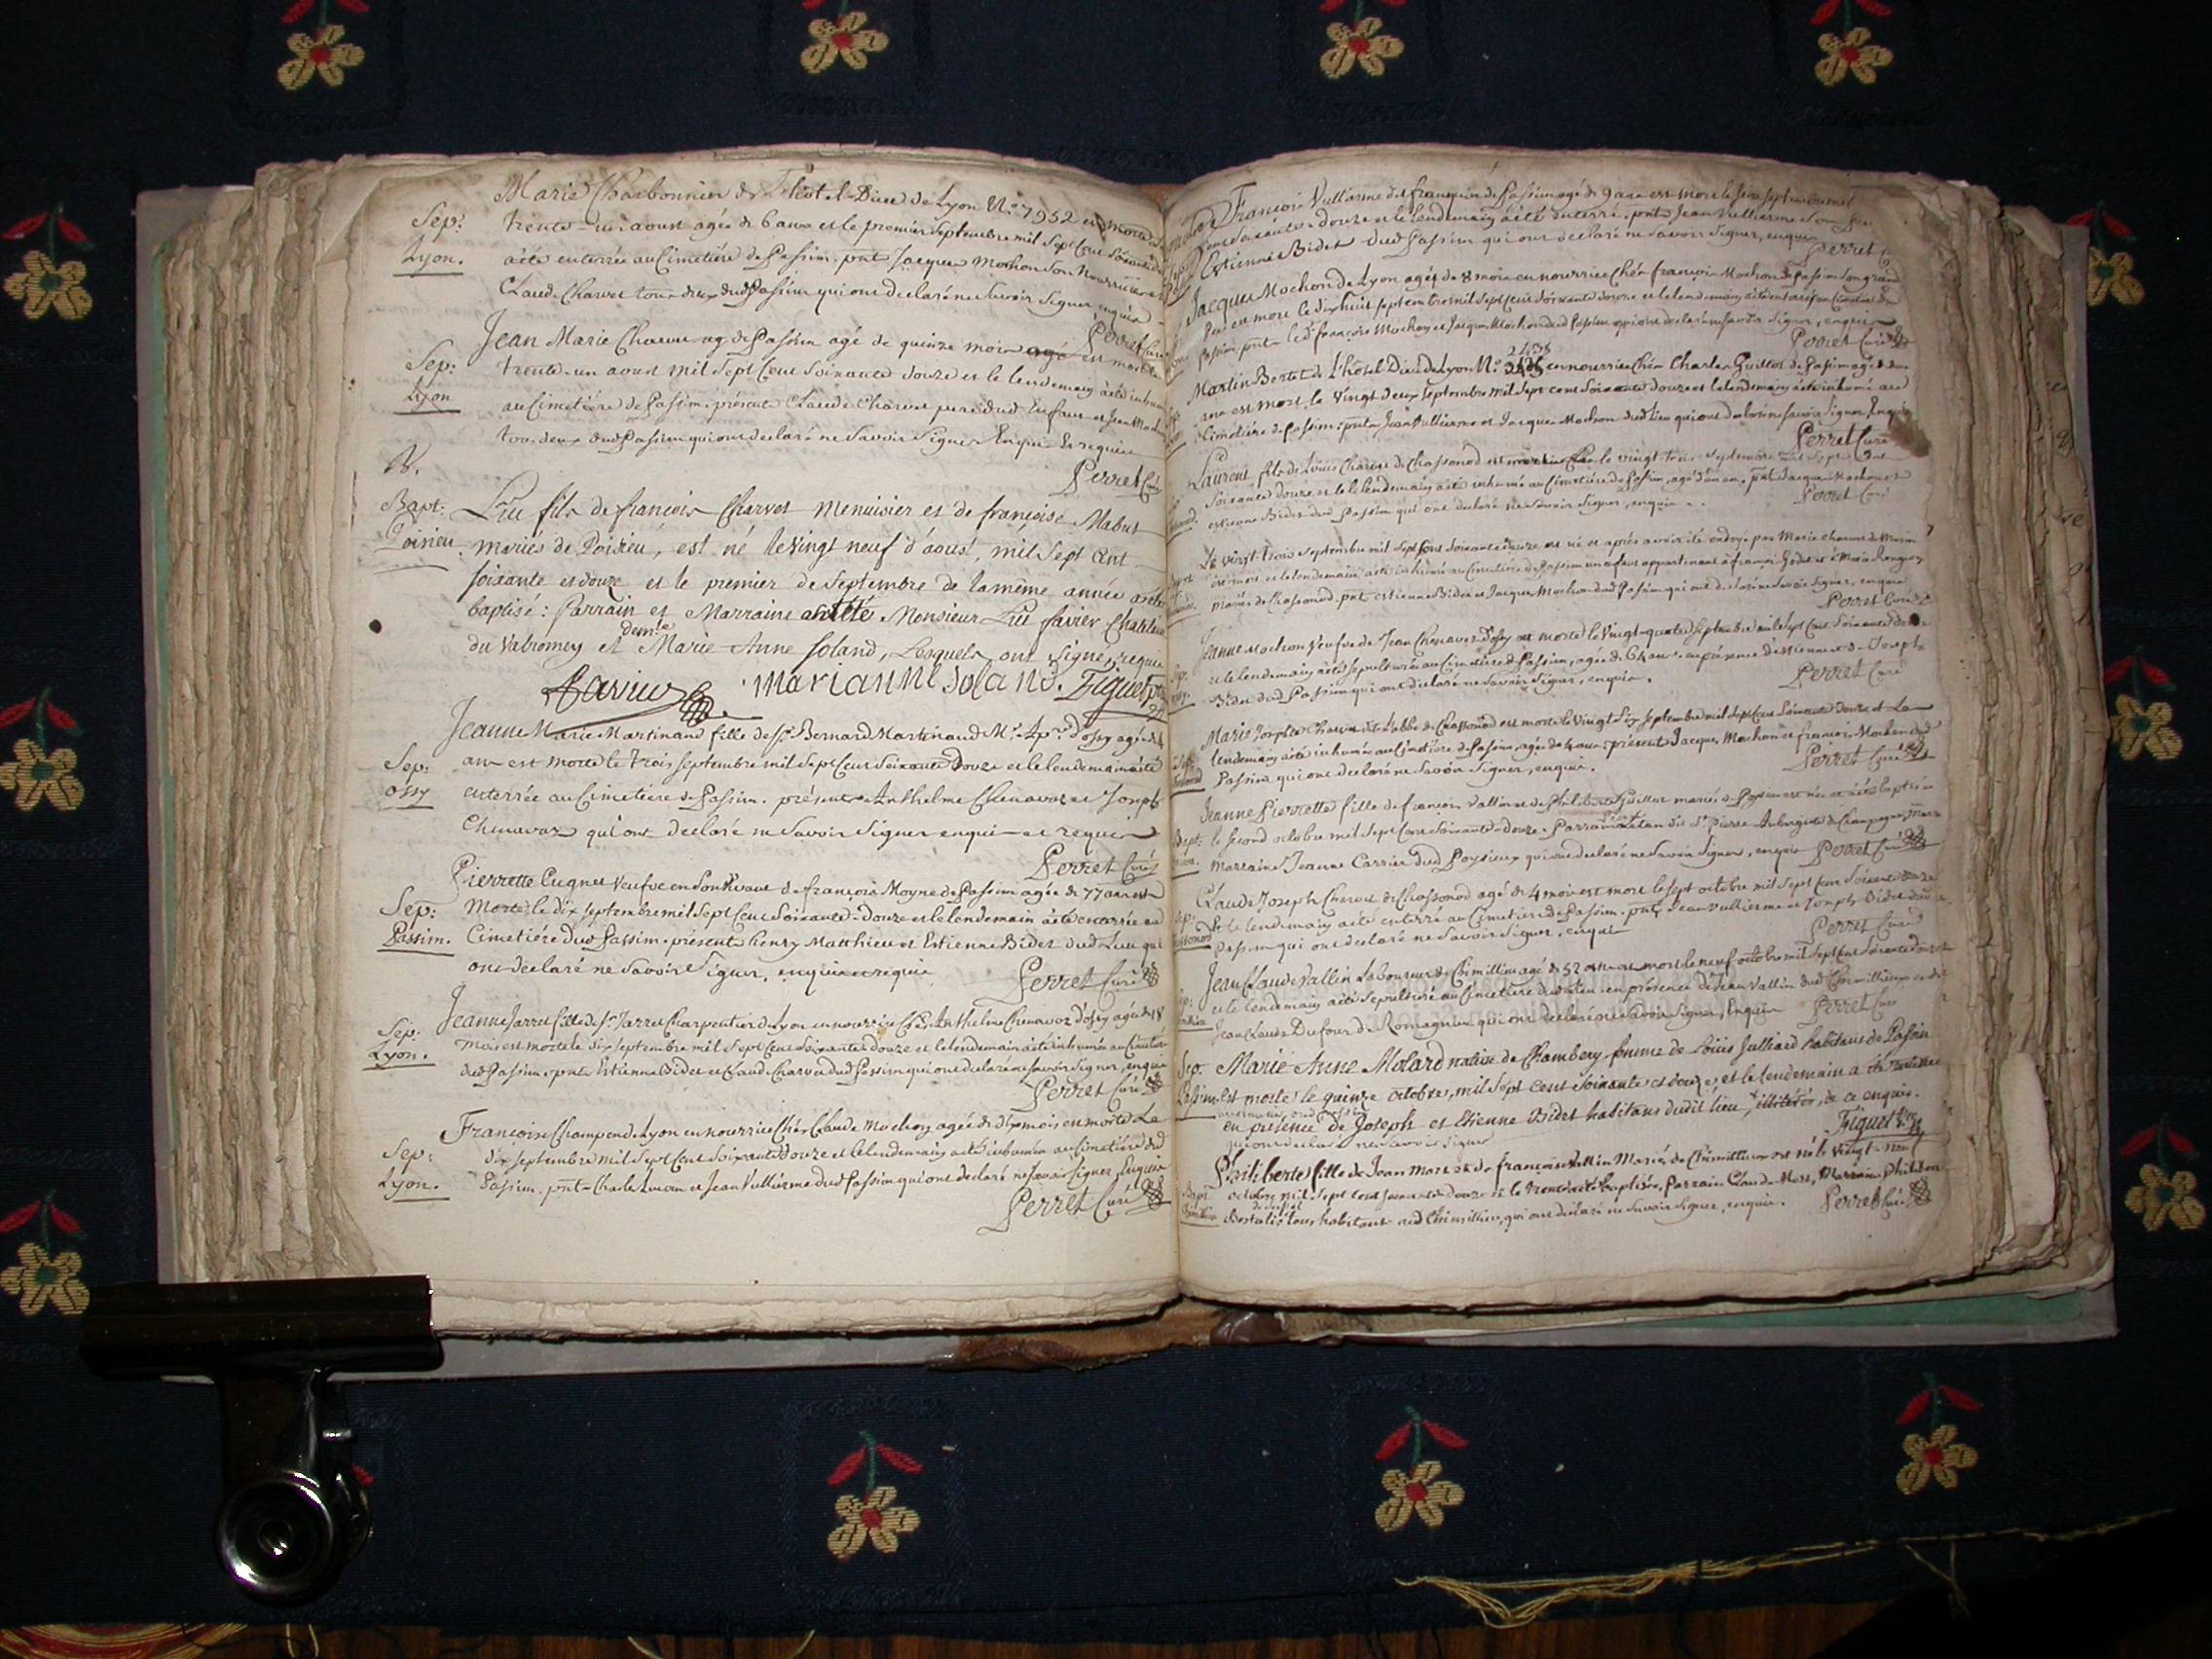 Marie Charbonnier de l'hotel-Dieu de Lyon N.o 7952 est morte le
Sep: trente-un aoust agée de 6 ans et le premier septembre mil sept cent soixante
Lyon. a été enterrée au Cimetiére de Passin. pnts Jacque Mochon son Nourricier et
Claude Charvet tous deux dud Passin qui ont declaré ne savoir signer, enquis
Perret Curé
Jean Marie Charvet de Passin agé de quinze mois est mort le
Sep: trente-un aoust mil sept cent soixante douze et le lendemain a été inhumé
Lyon au Cimetiére de Passin. présents Claude Charvet pere dud Enfant et Jean Mochon
tous deux dud Passin qui ont declaré ne savoir signer Enquis et requis
Perret Curé
N.
Bapt: fils de françois Charvet Menuisier et de françoise Mabut
Poisieu. mariés de Poisieu, est né le vingt neuf d'aoust, mil sept cent
soixante et douze et le premier de septembre de la même année a été
baptisé: Parrain et Marraine ont été Monsieur favier
du Valromey et demlle Marie-Anne soland, Lesquels ont signé, requis
favier marianne soland. Figuet
Jeanne Marie Martinand fille de Sr Bernard Martinaud d'ossy agée de
Sep: ans est morte le trois septembre mil sept cent soixante douze et le lendemain a été
ossy enterrée au Cimetiere de Passin. présents Anthelme Chenavaz et Joseph
Chenavaz qui ont declaré ne savoir signer enquis et requis
Perret Curé
Pierrette Cugnet Veufve en Son Vivant de françois Moyne de Passin agée de 77 ans est
Sep: Morte le dix septembre mil sept cent soixante-douze et le lendemain a été enterrée au
Passim. Cimetiére dud Passim. présents henry Matthieu et Estienne Bidet dud Lieu qui
ont declaré ne savoir signer, enquis et requis
Perret Curé
Jeanne Jarret fille de Sr Jarret Charpentier de Lyon en nourrice chés Anthelme Chenavaz d'ossy agée de 18
Sep: mois est morte le dix septembre mil sept cent soixante douze et le lendemain a été inhumée au Cimetiére
Lyon. dud Passin. pnts Estienne Bidet et Claude Charvet dud Passin qui ont declaré ne savoir signer, enquis
Perret Curé
Françoise Champ de Lyon en nourrice chés Claude Mochon agée de dix mois est morte Le
Sep: dix septembre mil sept cent soixante douze et le lendemain a été inhumée au Cimetiére dud
Lyon. Passin. pnts Charle et Jean Vullierme dud Passin qui ont declaré ne savoir signer Enquis
Perret Curé
François Vullierme de Passin agé de 9 ans est mort le septembre mil
sept cent soixante-douze et le lendemain a été enterré. pnts Jean Vullierme son
Estienne Bidet dud Passin qui ont declaré ne savoir signer, enquis
Perret C
Jacque Mochon de Lyon agé de 8 mois en nourrice chés françois Mochon de Passin son grand
Pere est mort le dix huit septembre mil sept cent soixante douze et le lendemain a été enterré au Cimetiere de
Passin. pnts led françois Mochon et Jacque Mochon dud Passin qui ont declaré ne savoir signer, enquis
Perret Curé
2435
Martin Bertet de l'hôtel Dieu de Lyon N.o en nourrice chés Charle Guillot de Passin agé de
ans est mort le vingt deux septembre mil sept cent soixante douze et le lendemain a été inhumé au
Cimetiére de Passin: pnts Jean Vullierme et Jacque Mochon dud lieu qui ont declaré ne savoir signer, Enquis
Perret Curé
Laurent, fils de Louis Charvet de Chassonod est le vingt trois septembre mil sept cent
soixante douze et le lendemain a été inhumé au Cimetiére de Passin, agé d'un an. pnts Jacque Mochon et
estienne Bidet dud Passin qui ont declaré ne savoir signer, enquis.
Perret Curé
Le vingt trois septembre mil sept cent soixante douze est né et aprés avoir été ondoyé par Marie Charvet
est mort et le lendemain a été inhumé au Cimetiére de Passin un enfant appartenant à françois Godet et à Marie
mariés de Chassonod. pnts estienne Bidet et Jacque Mochon dud Passin qui ont declaré ne savoir signer, enquis
Perret Curé
Jeanne Mochon Veufve de Jean Chenavaz d'ossy est morte le vingt-quatre septembre mil sept cent soixante douze
et le lendemain a été sepulturée au Cimetiére de Passin, agée de 64 ans. en présence d'estienne et de Joseph
ossy. Bidet dud Passin qui ont declaré ne savoir signer, enquis.
Perret Curé
Marie Josephte Charvet dite de Chassonod est morte le vingt six septembre mil sept cent soixante douze et Le
lendemain a été inhumée au Cimetiére de Passin, agée de 4 ans: présents Jacque Mochon et françois Mochon dud
Passin qui ont declaré ne savoir signer, enquis.
Perret Curé
Jeanne Pierrette fille de françois Vallin et de Philiberte Guillot mariés de Poysieu est née et a été baptisée
Bapt: le second octobre mil sept cent soixante-douze. Parrain Sr Pierre Aubergiste de Champagne,
marraine Jeanne Carrier dud Poysieux qui ont declaré ne savoir signer, enquis Perret Curé
Claude Joseph Charvet de Chassonod agé de 4 mois est mort le sept octobre mil sept cent soixante douze
Sep: et le lendemain a été enterré au Cimetiere de Passin. pnts Jean Vullierme et Joseph Bidet dud
Passin qui ont declaré ne savoir signer, enquis
Perret Curé
Jean Claude Vallin Laboureur de Chimillin agé de 52 ans est mort le neuf octobre mil sept cent soixante douze
et le lendemain a été sepulturé au Cimetiere dud Lieu en présence de Jean Vallin dud Chimillieu et de
Jean Claude Dufour de Romagnieu qui ont declaré ne savoir signer, Enquis Perret Curé
Sep. Marie Anne Molard native de Chambery femme de Loüis Julliard habitans de Passin
Passim. est morte le quinze octobre, mil sept cent soixante et douze, et le lendemain a été
en présence de Joseph et Etienne Bidet habitans dudit lieu, illiterés, de ce enquis.
qui ont declaré ne savoir signer
Figuet
Philiberte fille de Jean Mare et de françoise Vallin Mariés de Chimillieu est née le vingt-neuf
Bapt. octobre mil sept cent soixante douze et le trente a été baptisée. Parrain Claude Mare, Marraine Philiberte
tous habitants aud Chimillieu, qui ont declaré ne savoir signer, enquis. Perret Curé